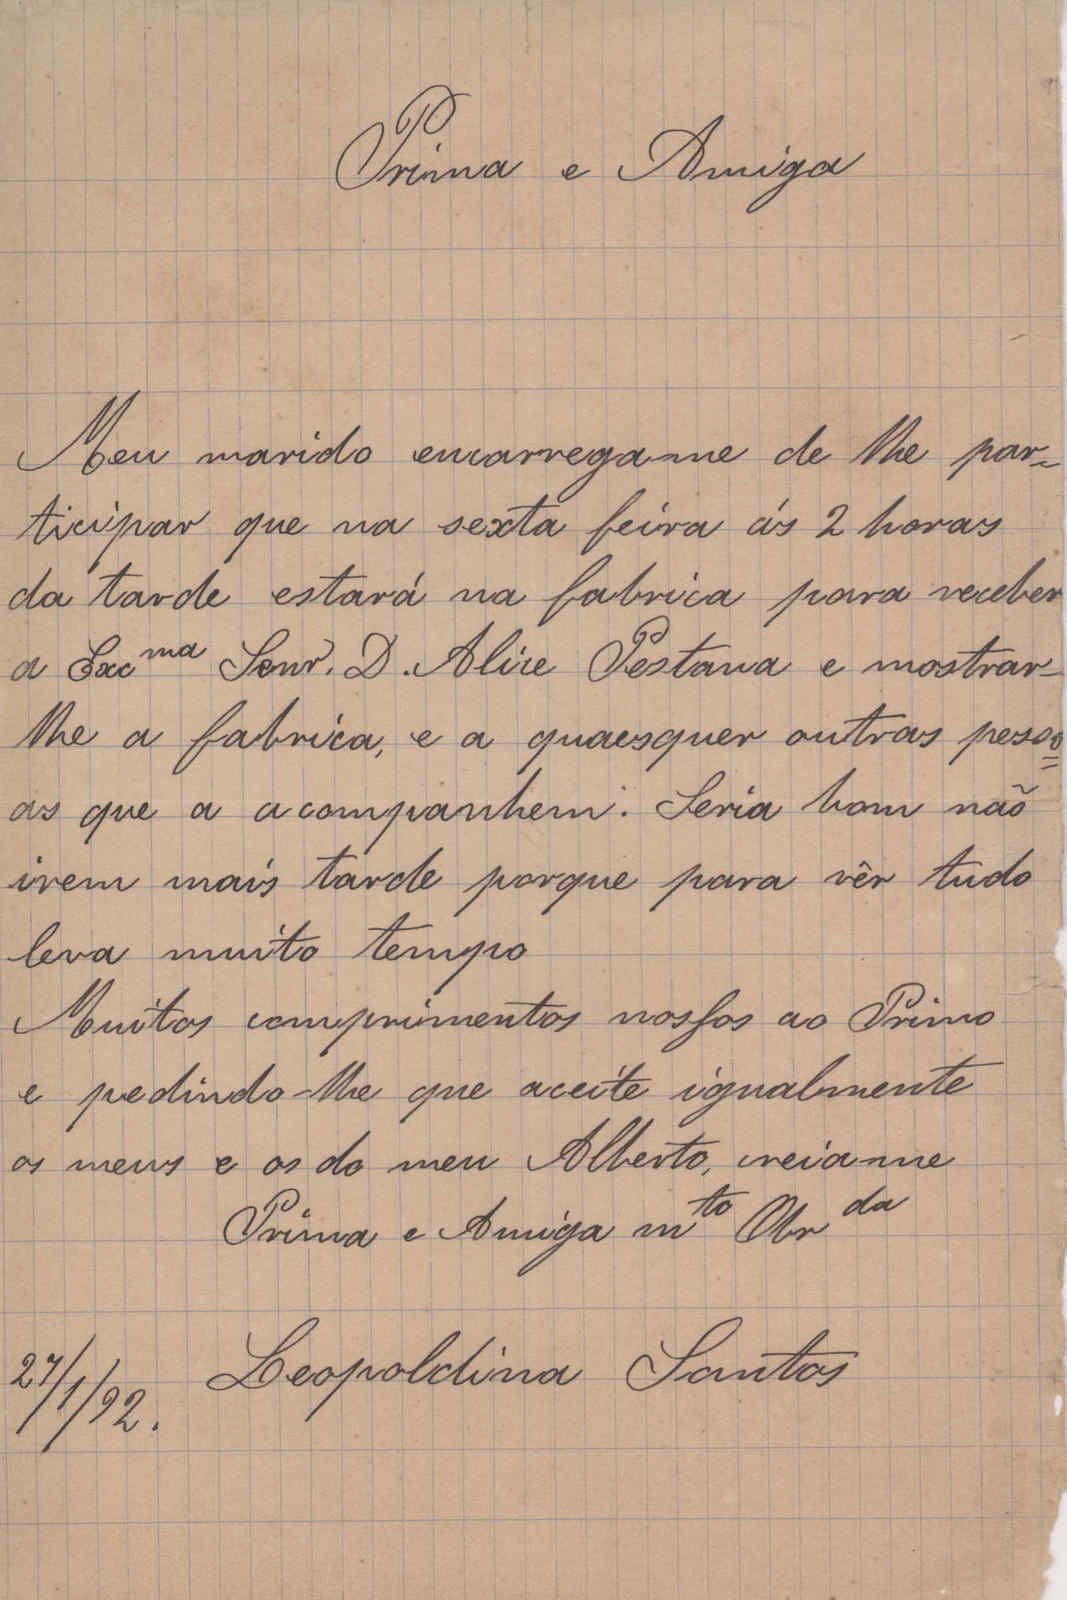 Prima e Amiga
Meu marido encarrega-me de lhe par-
ticipar que na sexta feira ás 2 horas
da tarde estará na fabrica para receber
a Exc^ma Senr. D. Alice Pestana e mostrar-
lhe a fabrica, e a quaesquer outras pesso
as que a acompanhem. Seria bom não
irem mais tarde porque para vêr tudo
leva muito tempo
Muitos comprimentos nossos ao Primo
e pedindo-lhe que aceite igualmente
os meus e os do meu Alberto, creia-me
Prima e Amiga m^to Obr^da
Leopoldina Santos
27/1/92.